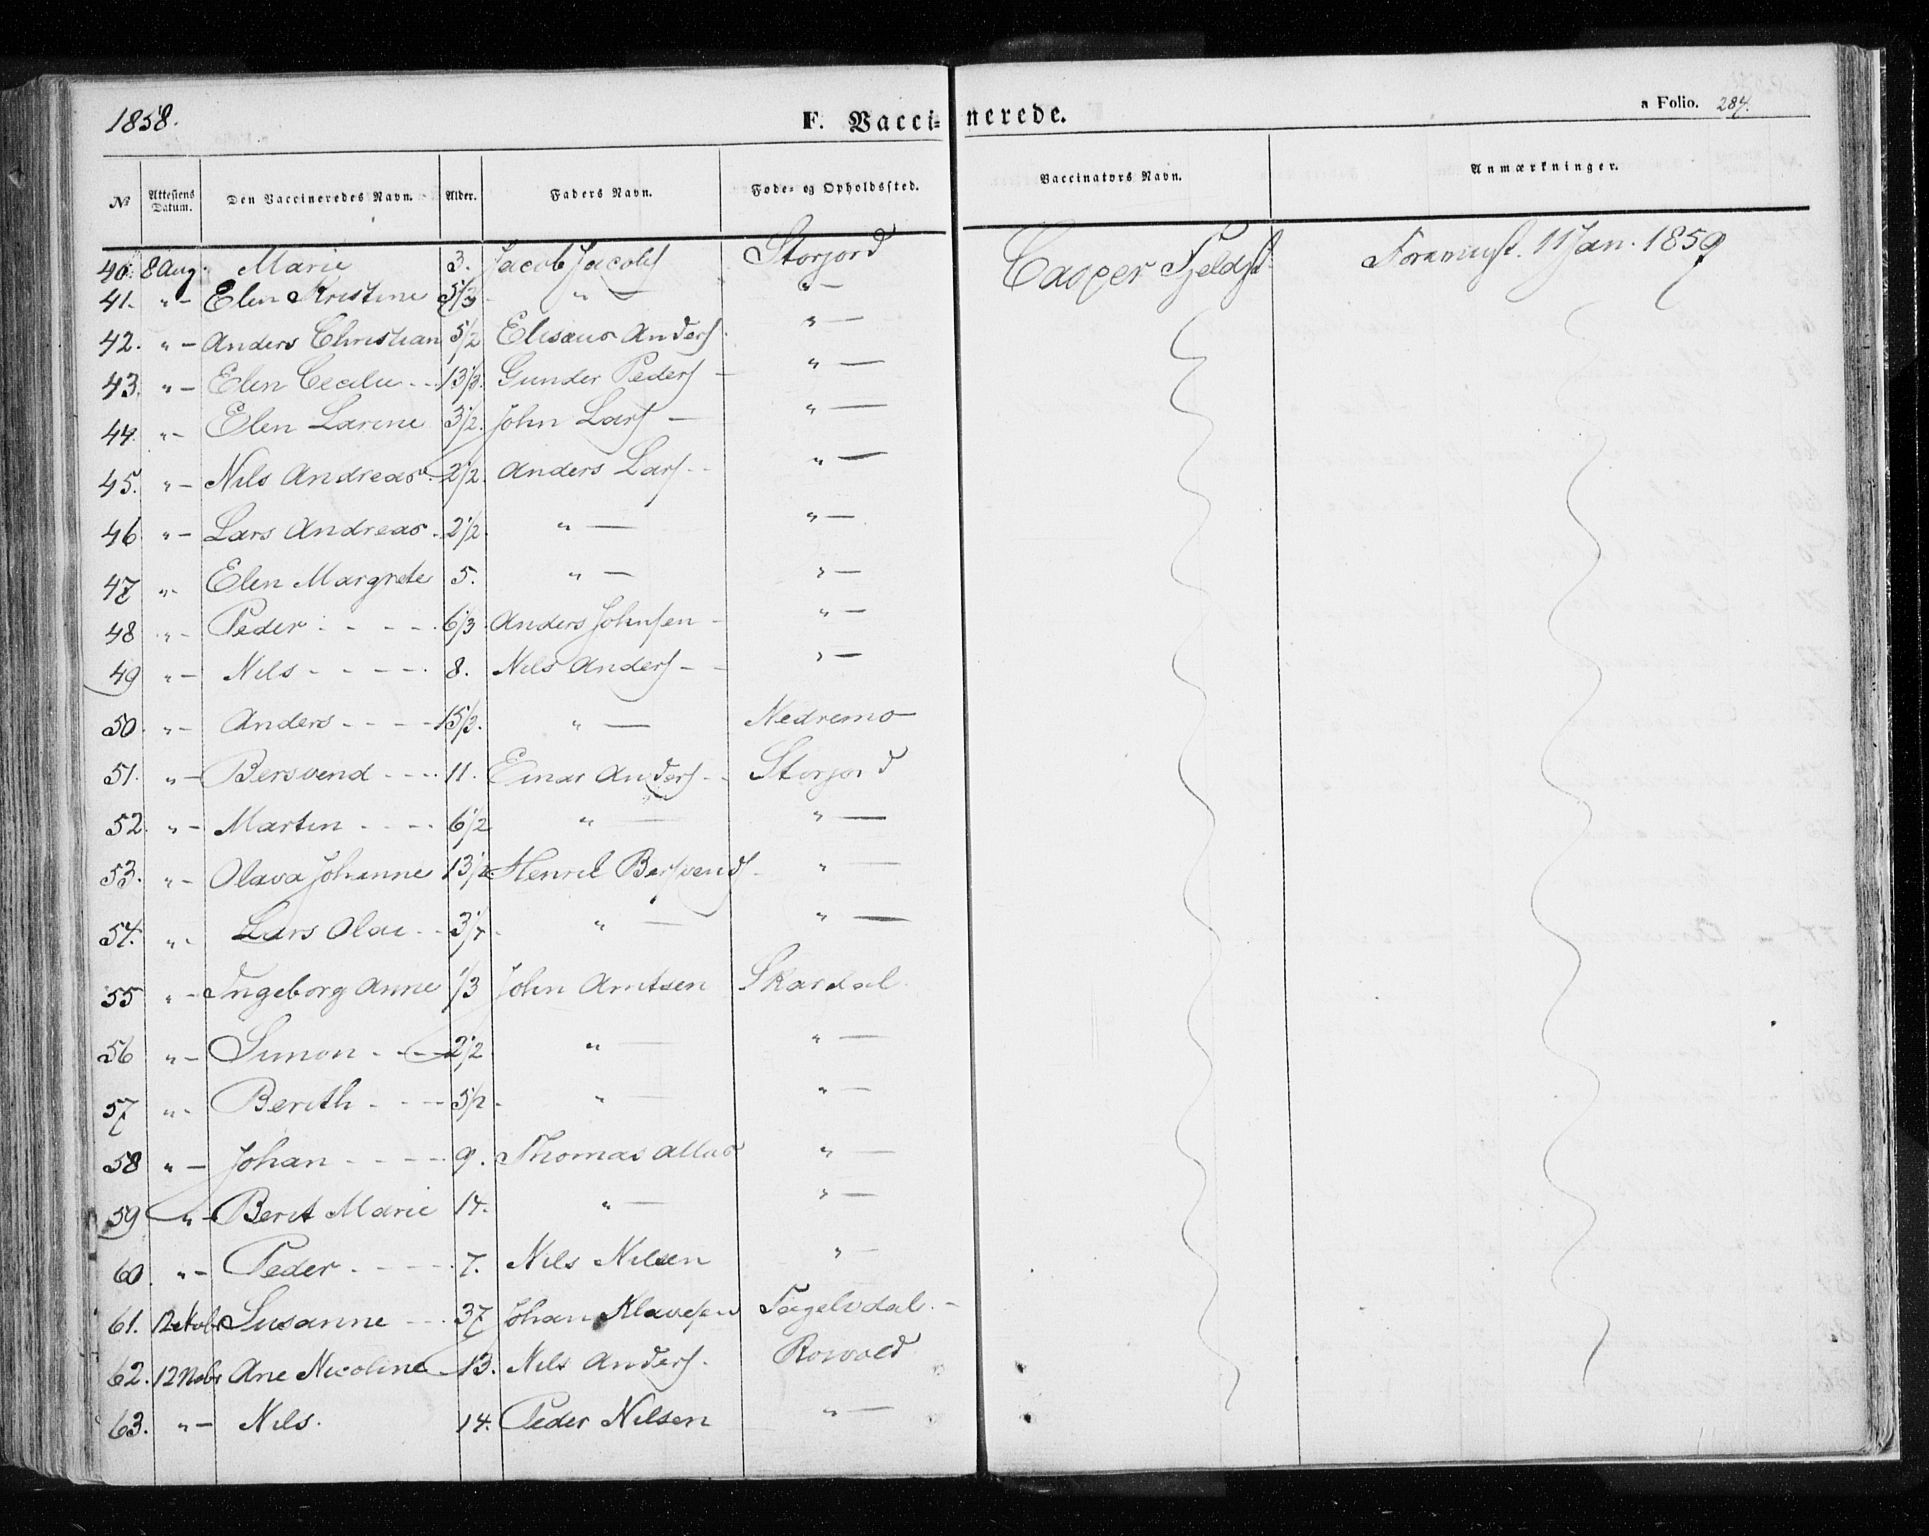 1858. F. Vaccinerede. a Folio. 284.
№ Attestens Datum. Den Vaccineredes Navn. Alder. Faders Navn. Føde- og Opholdssted. Vaccinators Navn. Anmærkninger.
40. 8 Aug. Marie 3. Jacob Jacobs Storjord Casper Fjeldst 11 Jan. 1859
41. " — Elen Kristine " — " —
42. " — Anders Christian 5 1/2 Elisæus Anders. " —
43. " — Elen Cecilie - - Gunder Peders — " —
44. " — Elen Larine 3 1/2. John Lars — " —
45. " — Nils Andreas 2 1/2. Anders Lars - - " —
46 " — Lars Andreas. 2 1/2. " — " —
47 " - Elen Margrete 5. " — " —
48 " - Peder - - - - 6 1/3. Anders Johnsen - " —
49 " - Nils - - - - 8. Nils Anders - - " —
50. " - Anders - - - - " — Nedremo
51. " — Bersvend - - - 11. Einar Anders - - Storjord
52. " — Martin - - - - 6 1/2 " — " —
53. " - Olava Johanne 13 1/2 Henrik Bersvends " —
54. " - Lars Olai - - " — " —
55 " - Ingeborg Anne 1/3 John Arntsen Skardal
56 " — Simon - - 2 1/2 " — " —
57 " - Berith - - - 5 1/2 - " — " —
58 " — Johan - - - - 9. Thomas " —
59 " — Berit Marie 14. " — " —
60. " — Peder - - - - 7. Nils Nilsen " —
61. Susanne - - 37 Johan Klavesen -
62. 12 Nobr Ane Nicoline 13. Nils Anders. Rovold
63. " — Nils. 14. Peder Nilsen " —